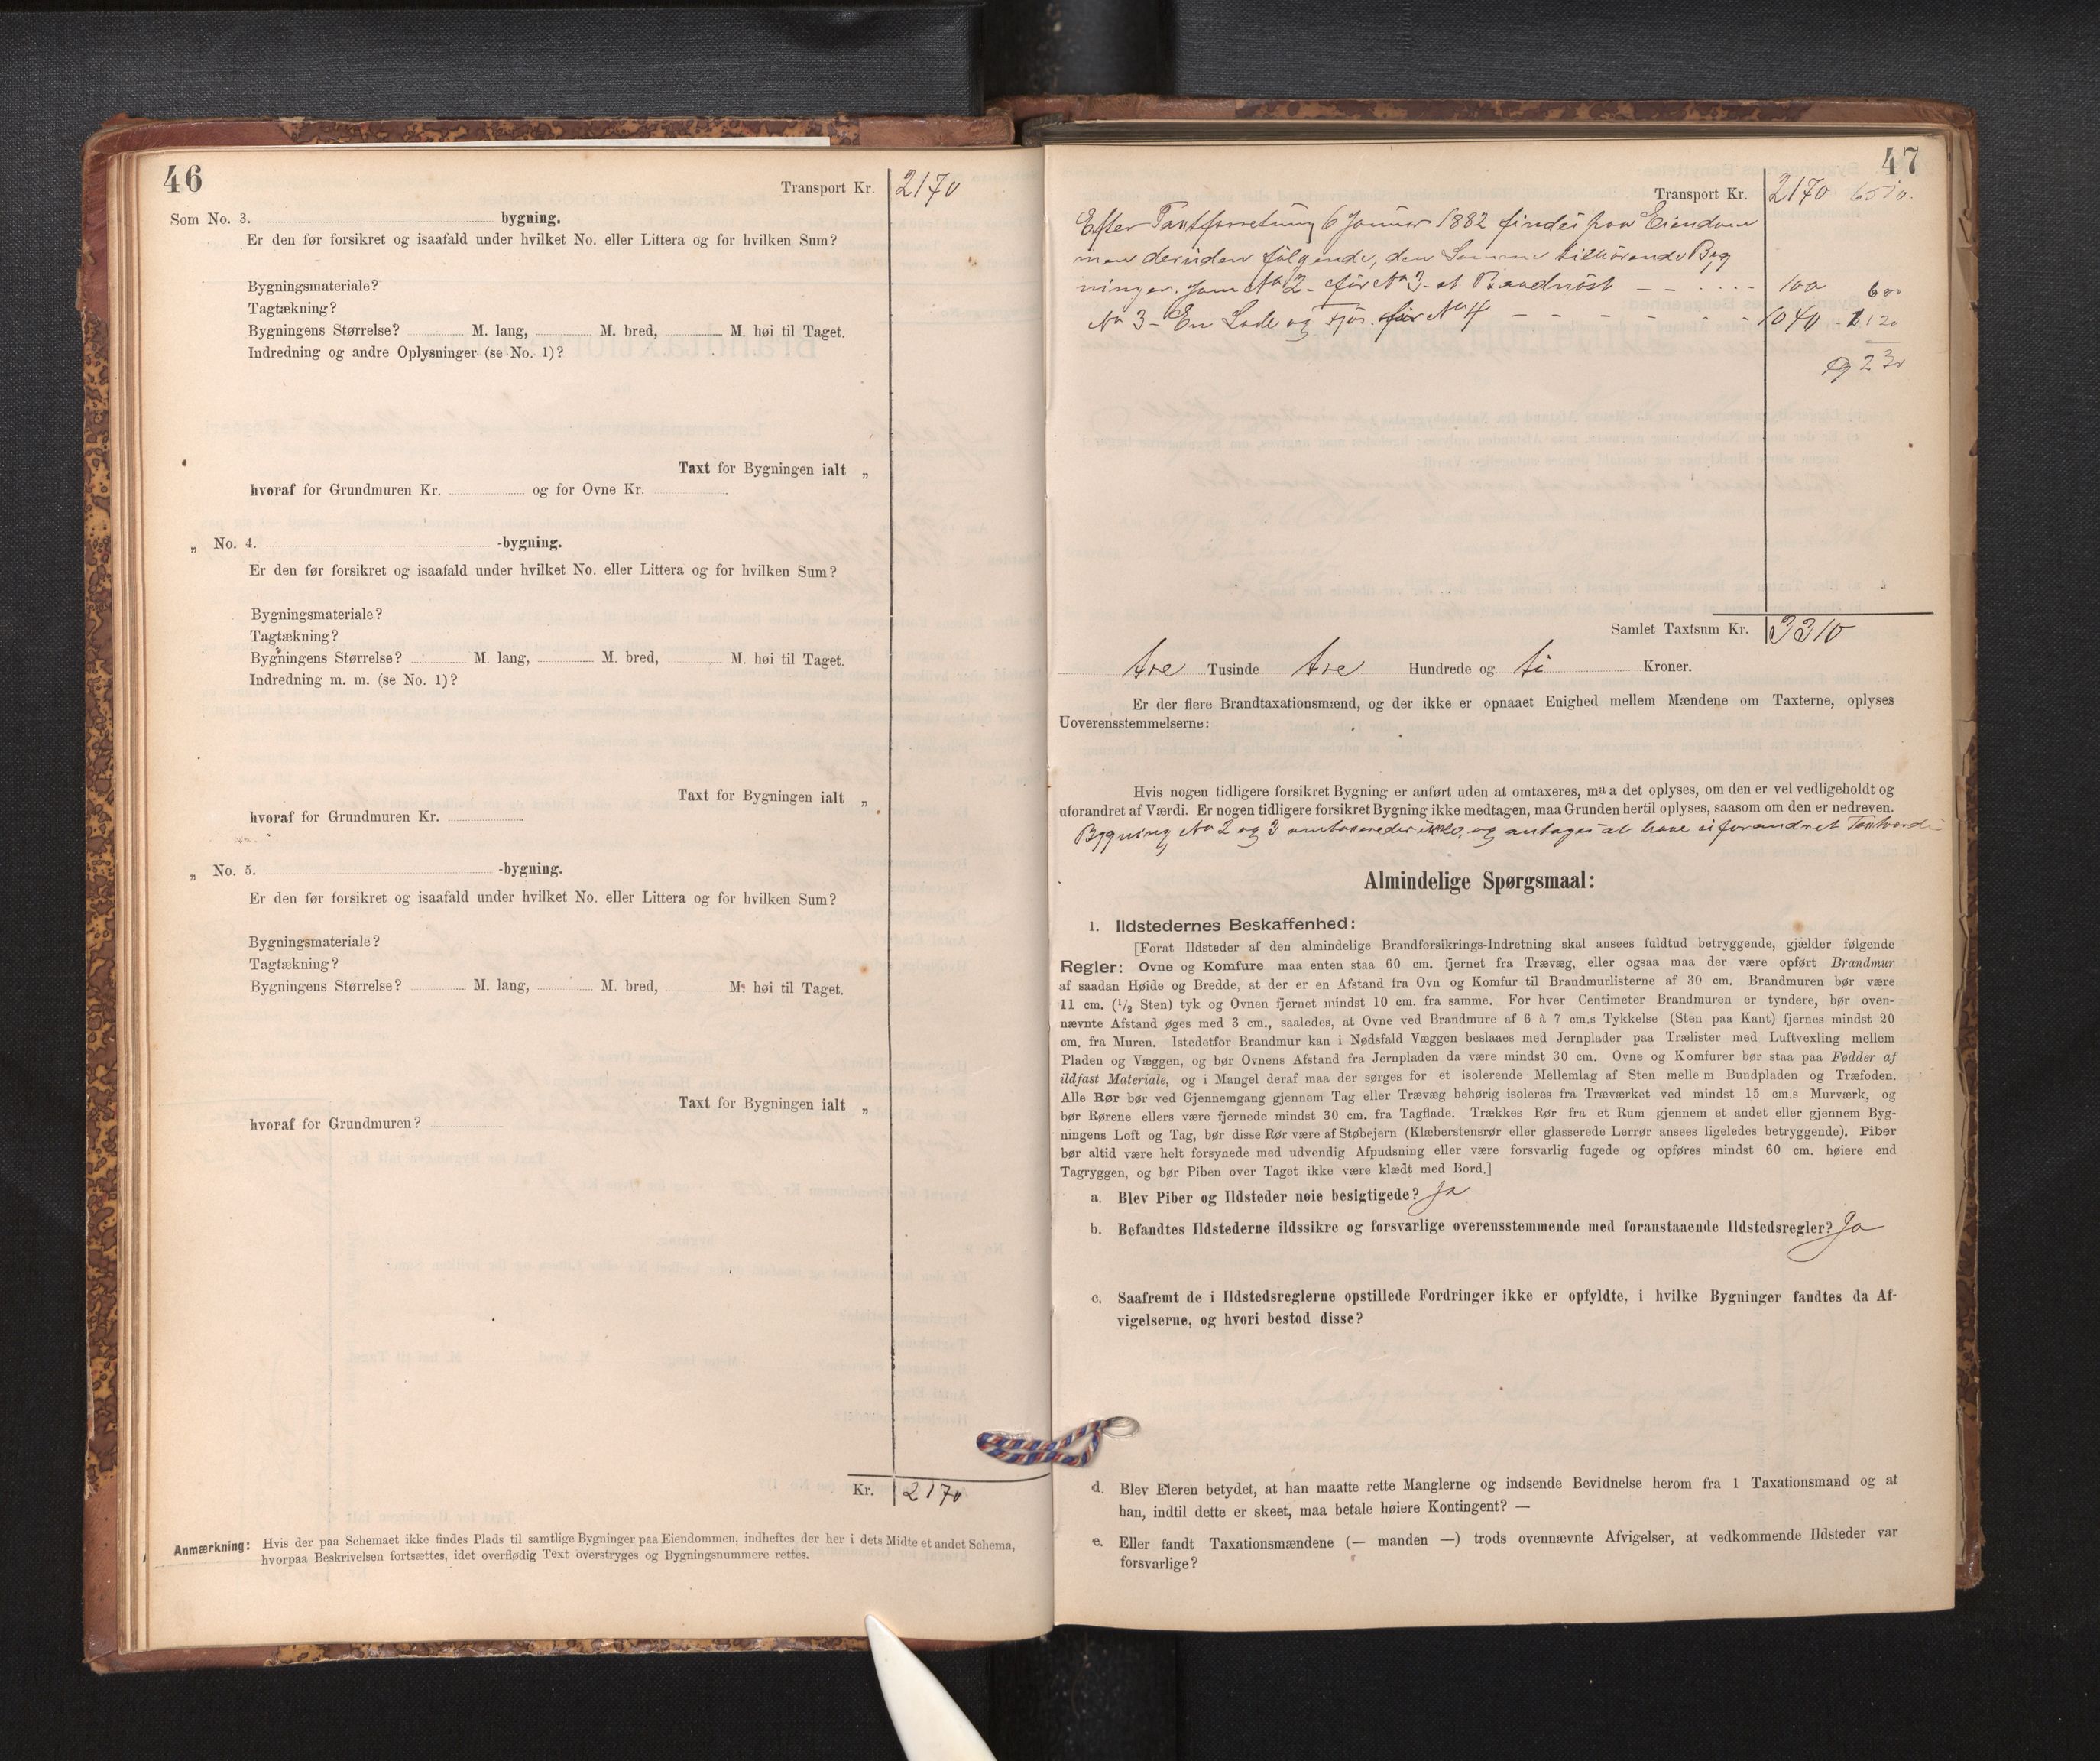 46
Transport Kr. 2170
Som No. 3. bygning.
Er den før forsikret og isaafald under hvilket No. eller Littera og for hvilken Sum?
Bygningsmateriale?
Tagtækning?
Bygningens Størrelse? M. lang, M. bred, M. høi til Taget.
Indredning og andre Oplysninger (se No. 1)?
Taxt for Bygningen ialt „
hvoraf for Grundmuren Kr. og for Ovne Kr.
„ No. 4. -bygning.
Er den før forsikret og isaafald under hvilket No. eller Littera og for hvilken Sum?
Bygningsmateriale?
Tagtækning?
Bygningens Størrelse? M. lang, M. bred, M. høi til Taget.
Indredning m. m. (se No. 1)?
Taxt for Bygningen ialt „
hvoraf for Grundmuren Kr.
„ No. 5. -bygning.
Er den før forsikret og isaafald under hvilket No. eller Littera og for hvilken Sum?
Bygningsmateriale?
Tagtækning?
Bygningens Størrelse? M. lang, M. bred, M. høi til Taget.
Taxt for Bygningen ialt „
hvoraf for Grundmuren?
Kr. 2170
Anmærkning: Hvis der paa Schemaet ikke findes Plads til samtlige Bygninger paa Eiendommen, indheftes der her i dets Midte et andet Schema,
hvorpaa Beskrivelsen fortsættes, idet overflødig Text overstryges og Bygningsnummere rettes.
47
Transport Kr. 2170
Efter Taxtforretning 6 Januar 1882 findes paa Eiendom
men desuden følgende, den Samme tilhørende Byg
ninger. Som No 2 - før No 3 - et Baadnøst - - 100 600
No 3 - En Lade og Fjøs. før No 4 - - - 1040 - 2120
Samlet Taxtsum Kr. 3310
tre Tusinde tre Hundrede og ti Kroner.
Er der flere Brandtaxationsmænd, og der ikke er opnaaet Enighed mellem Mændene om Taxterne, oplyses
Uoverensstemmelserne:
Hvis nogen tidligere forsikret Bygning er anført uden at omtaxeres, maa det oplyses, om den er vel vedligeholdt og
uforandret af Værdi. Er nogen tidligere forsikret Bygning ikke medtagen, maa Grunden hertil oplyses, saasom om den er nedreven.
Bygning No 2 og 3 omtaxeredes ikke, og antages at have uforandret Taxtværdi
Almindelige Spørgsmaal:
1. Ildstedernes Beskaffenhed:
[Forat Ildsteder af den almindelige Brandforsikrings-Indretning skal ansees fuldtud betryggende, gjælder følgende
Regler: Ovne og Komfure maa enten staa 60 cm. fjernet fra Trævæg, eller ogsaa maa der være opført Brandmur
af saadan Høide og Bredde, at der er en Afstand fra Ovn og Komfur til Brandmurlisterne af 30 cm. Brandmuren bør være
11 cm. (1/2 Sten) tyk og Ovnen fjernet mindst 10 cm. fra samme. For hver Centimeter Brandmuren er tyndere, bør oven-
nævnte Afstand øges med 3 cm., saaledes, at Ovne ved Brandmure af 6 à 7 cm.s Tykkelse (Sten paa Kant) fjernes mindst 20
cm. fra Muren. Istedetfor Brandmur kan i Nødsfald Væggen beslaaes med Jernplader paa Trælister med Luftvexling mellem
Pladen og Væggen, og bør Ovnens Afstand fra Jernpladen da være mindst 30 cm. Ovne og Komfurer bør staa paa Fødder af
ildfast Materiale, og i Mangel deraf maa der sørges for et isolerende Mellemlag af Sten mellem Bundpladen og Træfoden.
Alle Rør bør ved Gjennemgang gjennem Tag eller Trævæg behørig isoleres fra Træværket ved mindst 15 cm.s Murværk, og
bør Rørene ellers være fjernede mindst 30 cm. fra Tagflade. Trækkes Rør fra et Rum gjennem et andet eller gjennem Byg-
ningens Loft og Tag, bør disse Rør være af Støbejern (Klæberstensrør eller glasserede Lerrør ansees ligeledes betryggende). Piber
bør altid være helt forsynede med udvendig Afpudsning eller være forsvarlig fugede og opføres mindst 60 cm. høiere end
Tagryggen, og bør Piben over Taget ikke være klædt med Bord.]
a. Blev Piber og Ildsteder nøie besigtigede? Ja
b. Befandtes Ildstederne ildssikre og forsvarlige overensstemmende med foranstaaende Ildstedsregler? Ja
c. Saafremt de i Ildstedsreglerne opstillede Fordringer ikke er opfyldte, i hvilke Bygninger fandtes da Af-
vigelserne, og hvori bestod disse?
d. Blev Eieren betydet, at han maatte rette Manglerne og indsende Bevidnelse herom fra 1 Taxationsmand og at
han, indtil dette er skeet, maa betale høiere Kontingent? —
e. Eller fandt Taxationsmændene (— manden —) trods ovennævnte Afvigelser, at vedkommende Ildsteder var
forsvarlige?